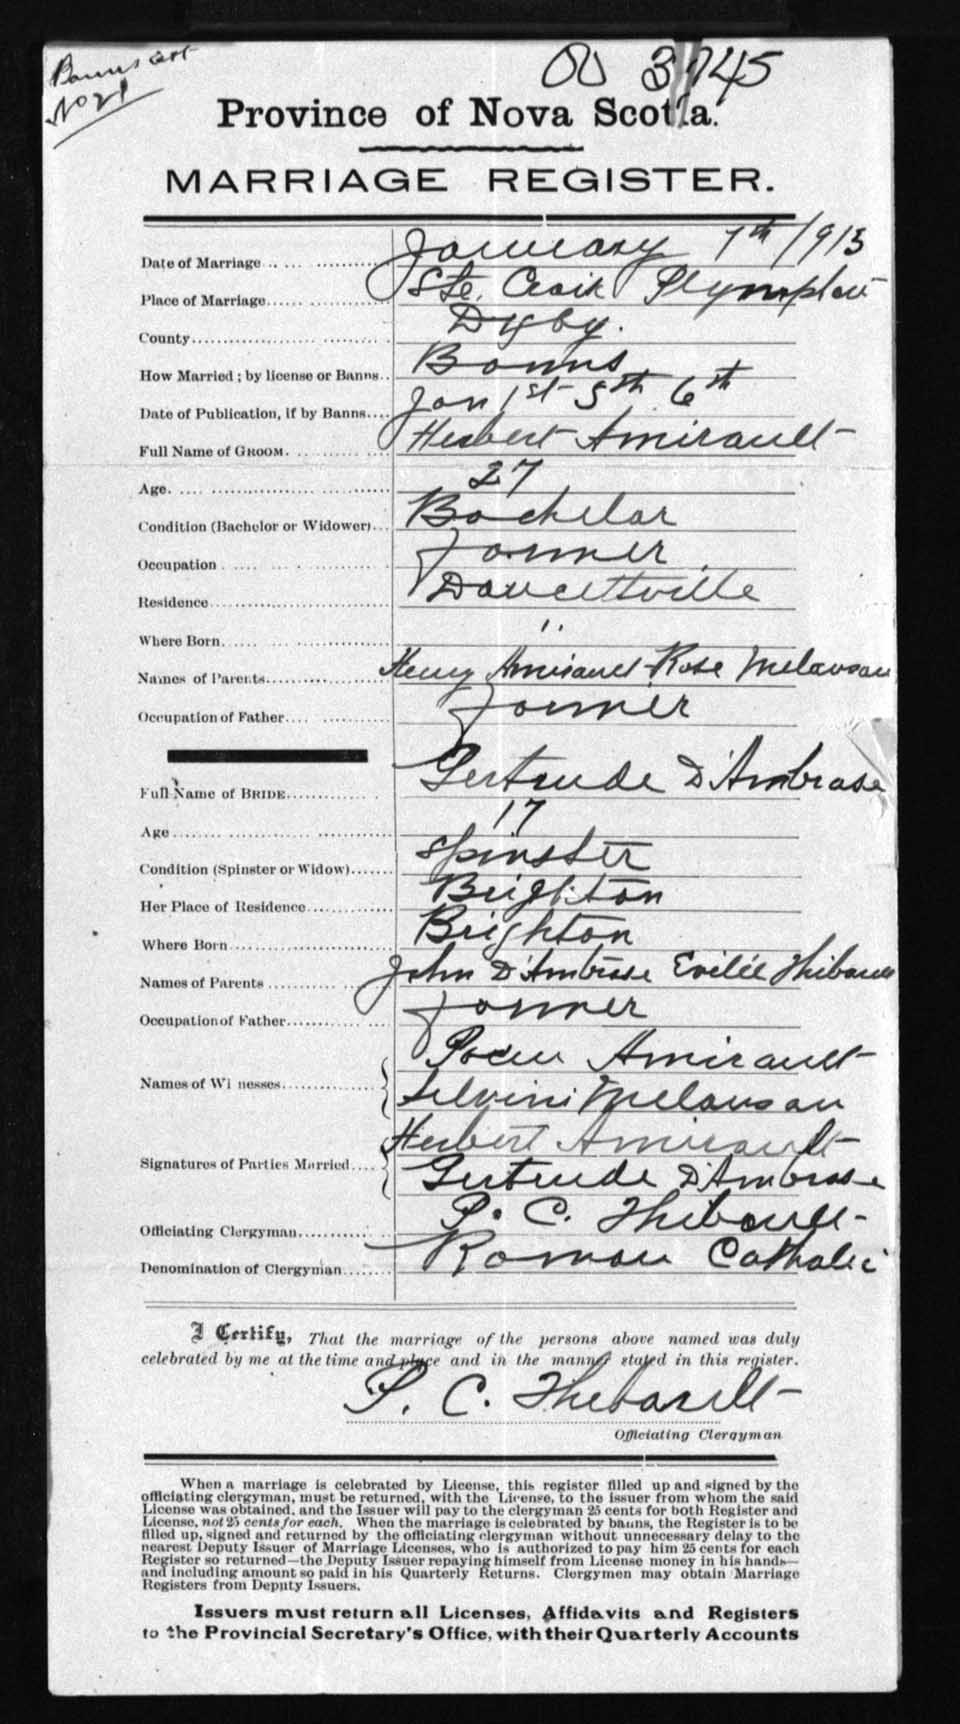 Banns cert
No 21
OU 3745
Province of Nova Scotia.
MARRIAGE REGISTER.
Date of Marriage January 7th 1913
Place of Marriage Ste. Croix Plympton
County Digby.
How Married ; by license or Banns Banns
Date of Publication, if by Banns Jan 1st 5th 6th
Full Name of GROOM Herbert Amirault
Age 27
Condition (Bachelor or Widower) Bachelor
Occupation Farmer
Residence Doucettville
Where Born "
Names of Parents Henry Amirault Rose Melanson
Occupation of Father Farmer
Full Name of BRIDE Gertrude D'Ambrose
Age 17
Condition (Spinster or Widow) Spinster
Her Place of Residence Brighton
Where Born Brighton
Names of Parents John D'Ambrose Evilée Thibault
Occupation of Father Farmer
Amirault
Names of Witnesses Melanson
Herbert Amirault
Signatures of Parties Married Gertrude D'Ambrose
Officiating Clergyman P. C. Thibault
Denomination of Clergyman Roman Catholic
I Certify, That the marriage of the persons above named was duly
celebrated by me at the time and place and in the manner stated in this register.
P. C. Thibault
Officiating Clergyman
When a marriage is celebrated by License, this register filled up and signed by the
officiating clergyman, must be returned, with the License, to the issuer from whom the said
License was obtained, and the Issuer will pay to the clergyman 25 cents for both Register and
License, not 25 cents for each. When the marriage is celebrated by banns, the Register is to be
filled up, signed and returned by the officiating clergyman without unnecessary delay to the
nearest Deputy Issuer of Marriage Licenses, who is authorized to pay him 25 cents for each
Register so returned—the Deputy Issuer repaying himself from License money in his hands—
and including amount so paid in his Quarterly Returns. Clergymen may obtain Marriage
Registers from Deputy Issuers.
Issuers must return all Licenses, Affidavits and Registers
to the Provincial Secretary's Office, with their Quarterly Accounts